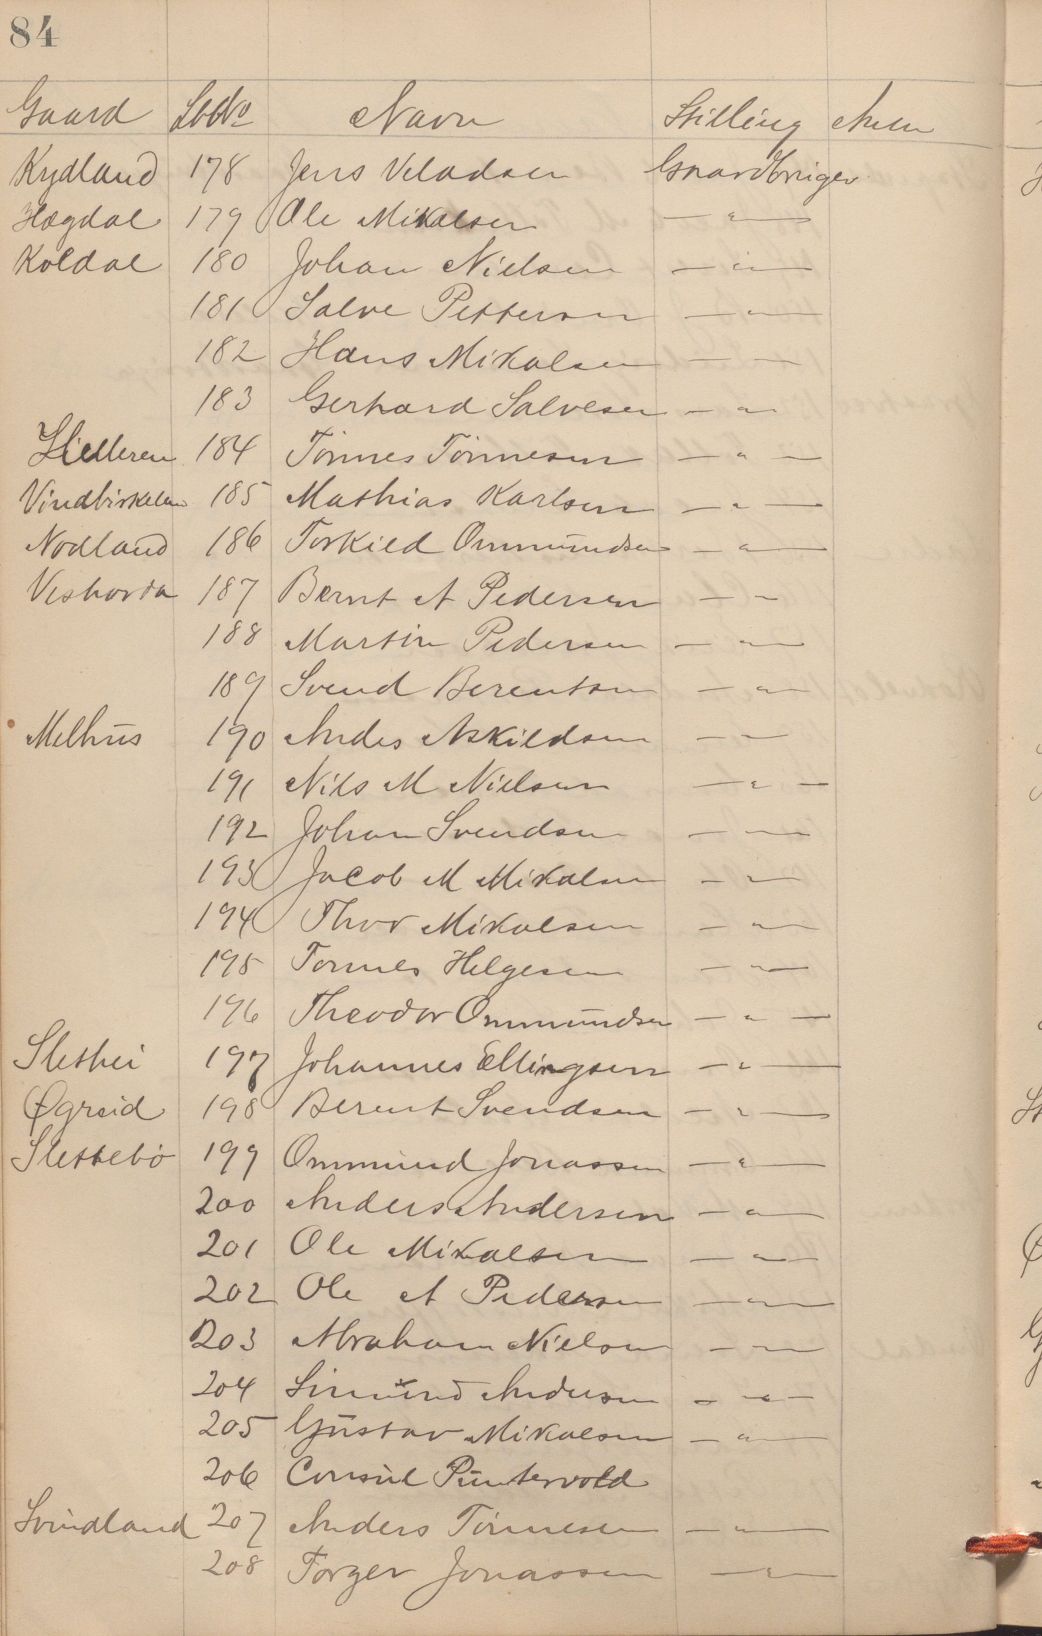 84
Gaard LbNo Navn Stilling Anm
Kydland 178 Jens Veladsen Gaardbruger
Hægdal 179 Ole Mikalsen — " —
Koldal 180 Johan Nielsen — " —
181 Salve Pettersen — " —
182 Hans Mikalsen — " —
183 Gerhard Salvesen — " —
Helleren 184 Tönnes Tönnesen — " —
185 Mathias Karlsen — " —
Nodland 186 Torkild Ommundsen — " —
187 Bernt A Pedersen — " —
188 Martin Pedersen — " —
189 Svend Berentsen — " —
Melhus 190 Andes Askildsen — " —
191 Nils M Nielsen — " —
192 Johan Svendsen — " —
193 Jacob M Mikalsen — " —
194 Thor Mikalsen — " —
195 Tonnes Helgesen — " —
196 Theodor Ommundsen — " —
Slethei 197 Johannes Ellingsen — " —
Øgreid 198 Berent Svendsen — " —
Slettebö 199 Ommund Jonassen — " —
200 Anders Andersen — " —
201 Ole Mikalsen — " —
202 Ole A Pedersen — " —
203 Abraham Nielsen — " —
204 Simund Andersen — " —
205 Gustav Mikalsen — " —
206 Consul Puntervold
Svindland 207 Anders Tönnesen — " —
208 Torger Jonassen — " —